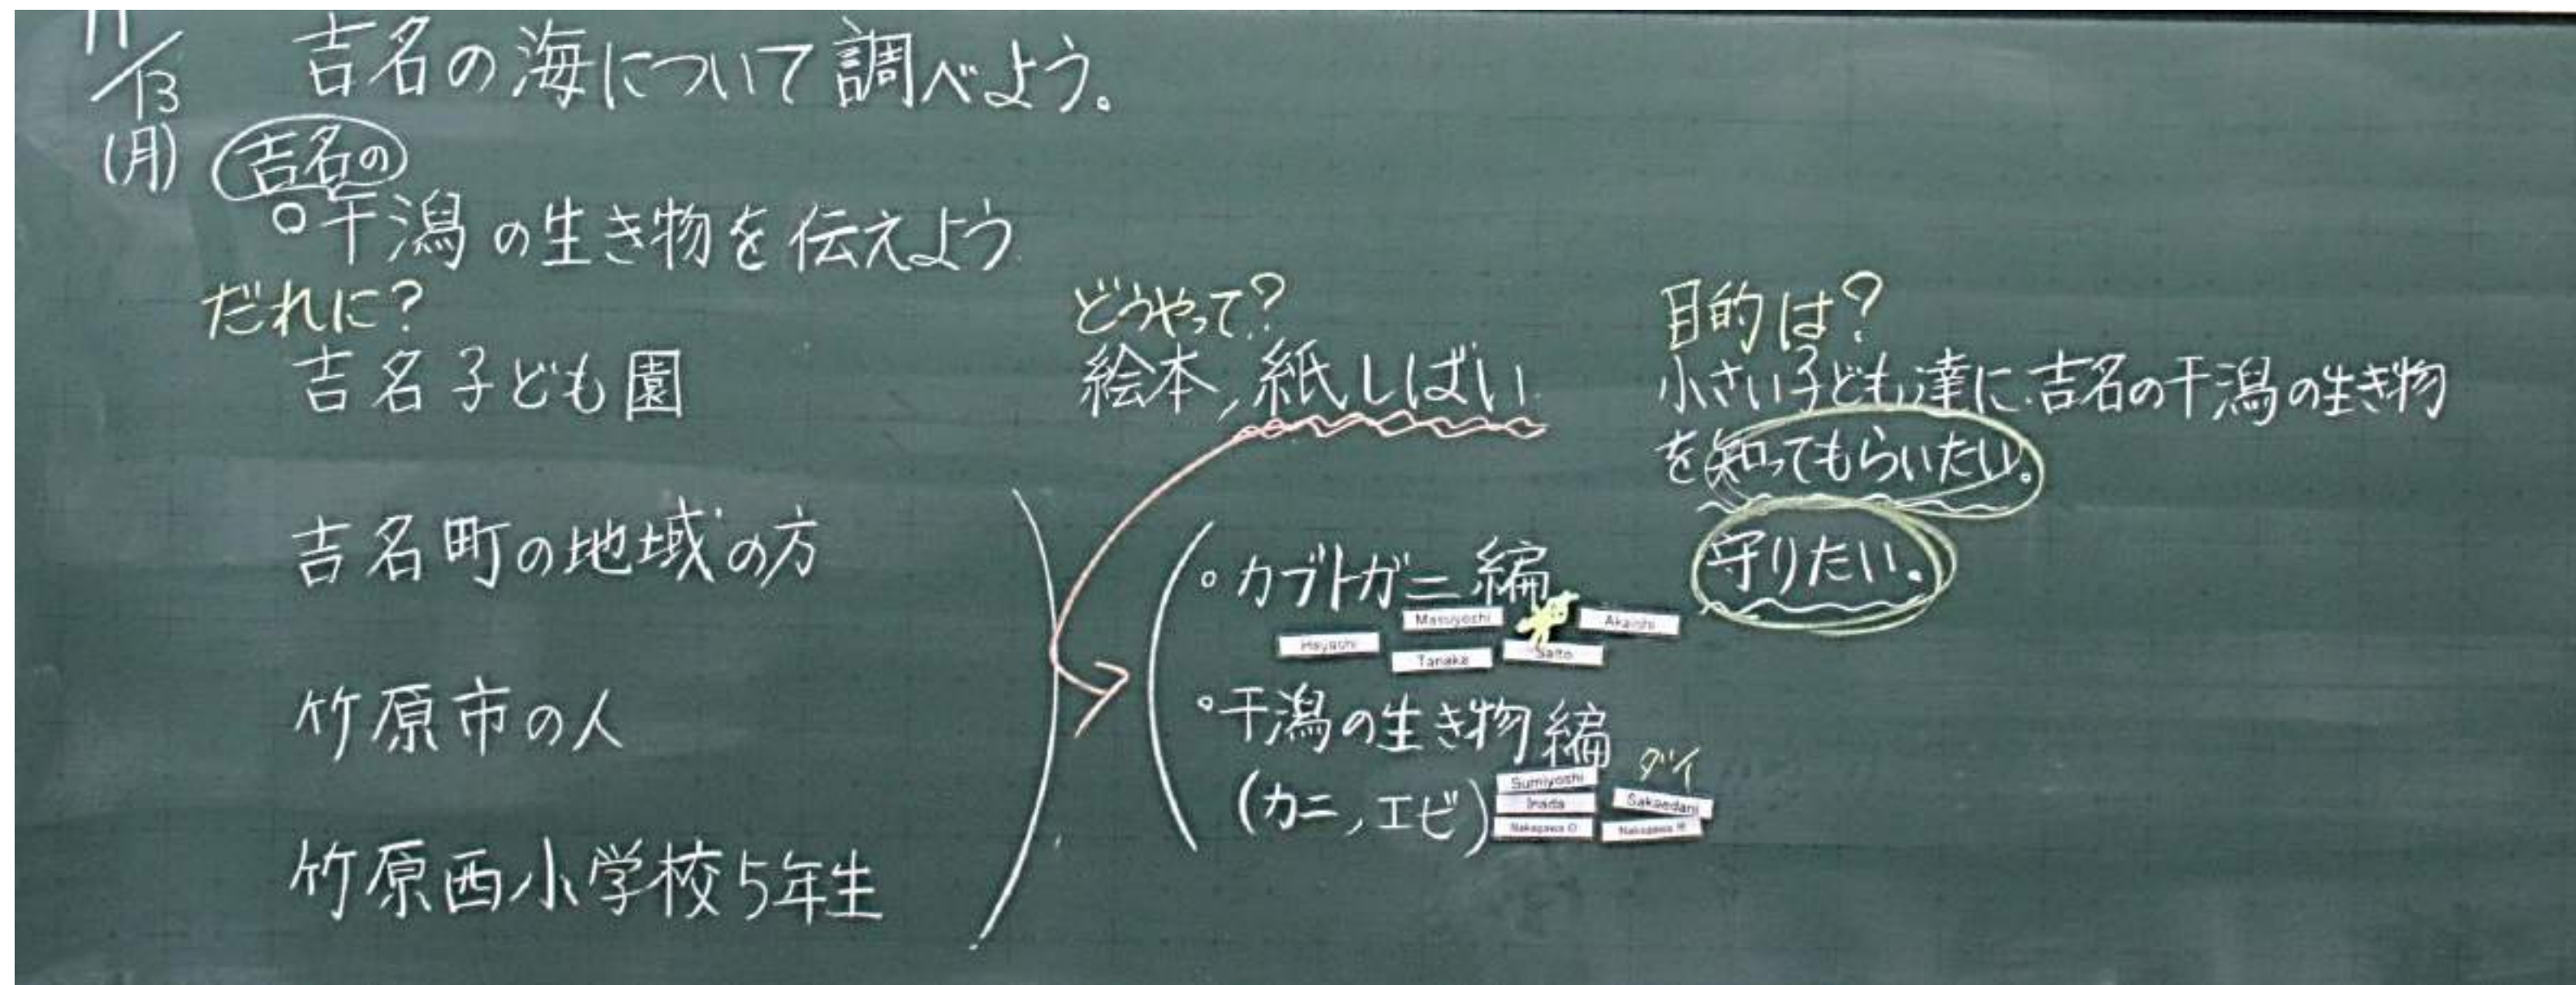 11/13
(月)
吉名の海について調べよう。
吉名の
○干潟の生き物を伝えよう
だれに?
吉名子ども園
吉名町の地域の方
竹原市の人
竹原西小学校5年生
どうやって?
絵本,紙しばい
。カブトガニ編
Masuyoshi
Akaishi
Hayashi
Tanaka
Saito
。干潟の生き物編
(カニ,エビ)
Sumiyoshi
Inada
ダイ
Sakaedani
目的は?
小さい子ども達に.吉名の干潟の生き物
を知ってもらいたい。
守りたい。